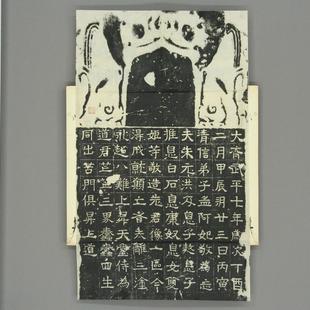 大齊武平七年歲次丁酉
二月甲辰朔廿三日丙寅
清信弟子孟阿妃敬為亡
夫朱元洪及息子敖息子
推息白石息康奴息女雙
姬等敬造老君像一區今
得成就願亡者去離三塗
永超八難上昇天堂侍為
道君芒芒三界蠢蠢四生
同出苦門俱昇上道